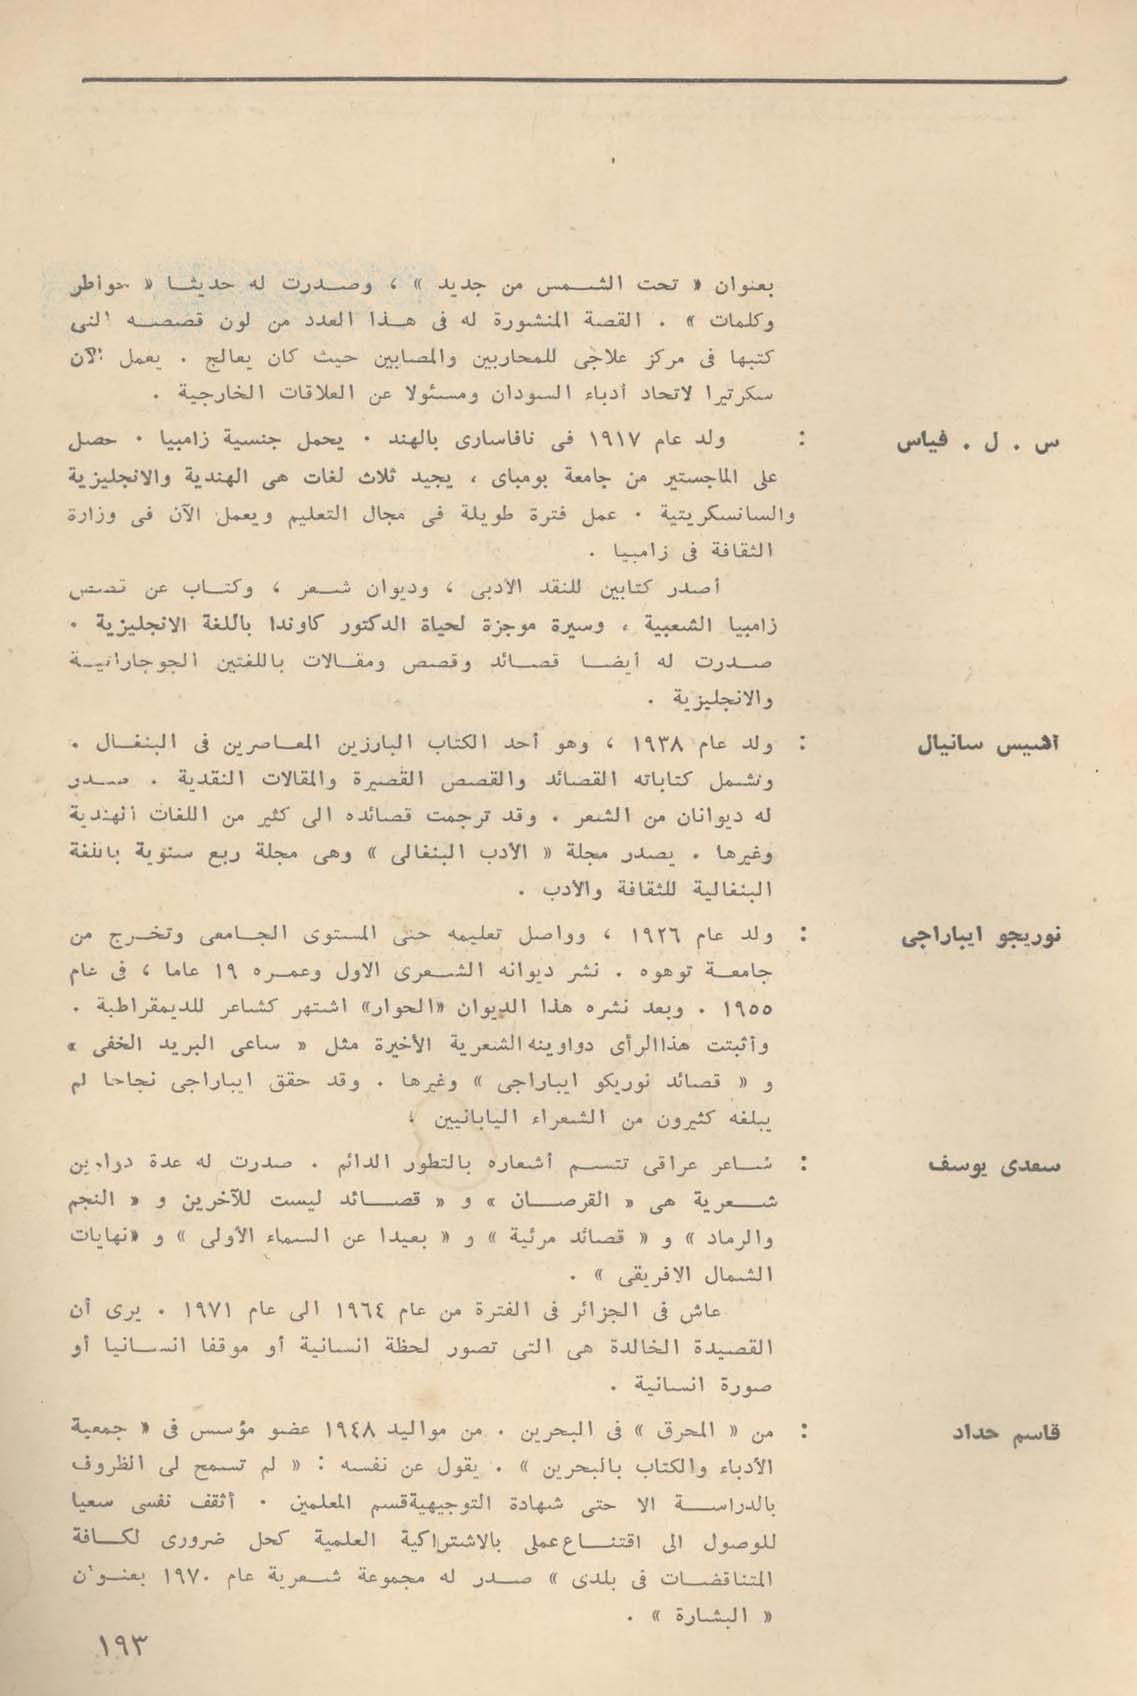 بعنوان « تحت الشمس من جديد » ، وصدرت له حديثا « خواطر
وكلمات » . القصة المنشورة له فى هذا العدد من لون قصصه التى
كتبها فى مركز علاجى للمحاربين والمصابين حيث كان يعالج . يعمل الآن
سكرتيرا لاتحاد أدباء السودان ومسئولا عن العلاقات الخارجية .
س . ل . فياس : ولد عام ١٩١٧ فى نافاسارى بالهند . يحمل جنسية زامبيا . حصل
على الماجستير من جامعة بومباى ، يجيد ثلاث لغات هى الهندية والانجليزية
والسانسكريتية . عمل فترة طويلة فى مجال التعليم ويعمل الآن فى وزارة
الثقافة فى زامبيا .
أصدر كتابين للنقد الأدبى ، وديوان شعر ، وكتاب عن قصص
زامبيا الشعبية ، وسيرة موجزة لحياة الدكتور كاوندا باللغة الانجليزية .
صدرت له أيضا قصائد وقصص ومقالات باللغتين الجوجاراتية
والانجليزية .
اشيس سانيال : ولد عام ١٩٣٨ ، وهو أحد الكتاب البارزين المعاصرين فى البنغال .
وتشمل كتاباته القصائد والقصص القصيرة والمقالات النقدية . صدر
له ديوانان من الشعر . وقد ترجمت قصائده الى كثير من اللغات الهندية
وغيرها . يصدر مجلة « الأدب البنغالى » وهى مجلة ربع سنوية باللغة
البنغالية للثقافة والأدب .
نوريجو ايباراجى : ولد عام ١٩٢٦ ، وواصل تعليمه حتى المستوى الجامعى وتخرج من
جامعة توهوه . نشر ديوانه الشعرى الاول وعمره ١٩ عاما ، فى عام
١٩٥٥ . وبعد نشره هذا الديوان «الحوار» اشتهر كشاعر للديمقراطية .
وأثبتت هذا الرأى دواوينه الشعرية الأخيرة مثل « ساعى البريد الخفى »
و « قصائد نوريكو ايباراجى » وغيرها . وقد حقق ايباراجى نجاحا لم
يبلغه كثيرون من الشعراء اليابانيين ،
سعدى يوسف : شاعر عراقى تتسم أشعاره بالتطور الدائم . صدرت له عدة دواوين
شعرية هى « القرصان » و « قصائد ليست للآخرين و « النجم
والرماد » و « قصائد مرئية » و « بعيدا عن السماء الأولى » و «نهايات
الشمال الافريقى » .
عاش فى الجزائر فى الفترة من عام ١٩٦٤ الى عام ١٩٧١ . يرى أن
القصيدة الخالدة هى التى تصور لحظة انسانية أو موقفا انسانيا أو
صورة انسانية .
قاسم حداد : من « المحرق » فى البحرين . من مواليد ١٩٤٨ عضو مؤسس فى « جمعية
الأدباء والكتاب بالبحرين » . يقول عن نفسه : « لم تسمح لى الظروف
بالدراسة الا حتى شهادة التوجيهية قسم المعلمين . أثقف نفسى سعيا
للوصول الى اقتناع عملى بالاشتراكية العلمية كحل ضرورى لكافة
المتناقضات فى بلدى » صدر له مجموعة شعرية عام ١٩٧٠ بعنوان
« البشارة » .
١٩٣